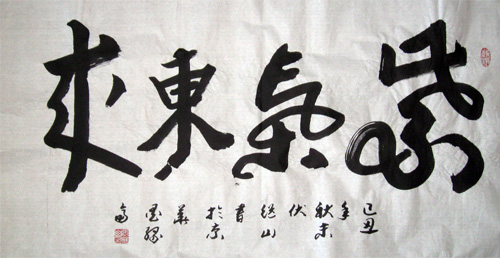 紫氣東來
己丑年秋末伏 山書於京華墨緣斋